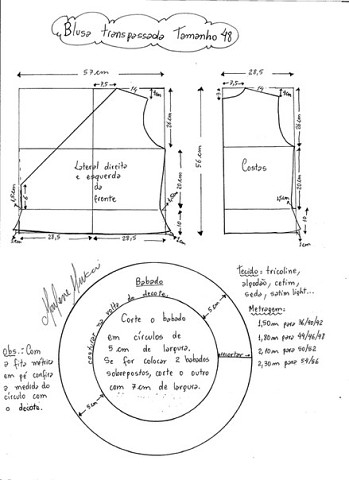 Blusa transpassada Tamanho 48
57cm
28,5
7,5
14
4cm
26cm
56cm
Lateral direita
e esquerda
da
frente
Costas
20cm
20cm
6
10
10
28,5
28,5
Babado
costurar na volta do decote.
5cm
Corte o babado
em círculos de
5cm de largura.
Se for colocar 2 babados
sobrepostos, corte o outro
com 7cm de largura.
5cm
encurtar
Obs.: Com
a fita métrica
em pé confira
a medida do
círculo com
o decote.
Tecido: tricoline,
algodão, cetim,
seda, satim light...
Metragem:
1,50m para 36/40/42
1,80m para 44/46/48
2,10m para 50/52
2,30m para 54/56